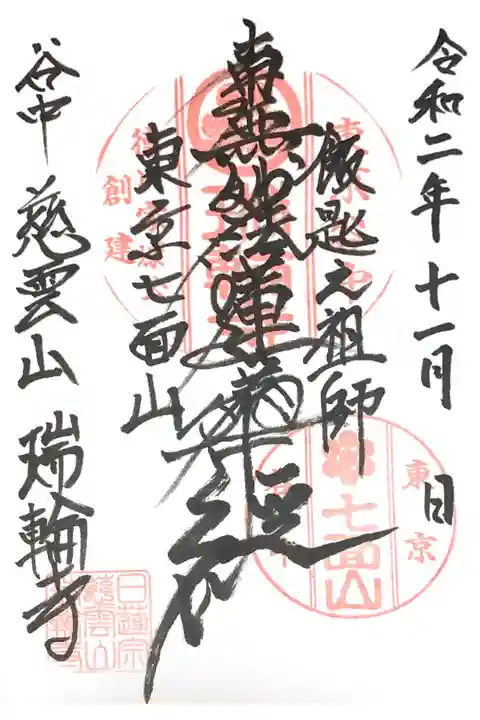 令和二年十一月 日
飯匙之祖師
南無妙法蓮華経
東京七面山
谷中 慈雲山 瑞輪寺
東京
七面山
創建
日蓮宗
慈雲山
瑞輪寺